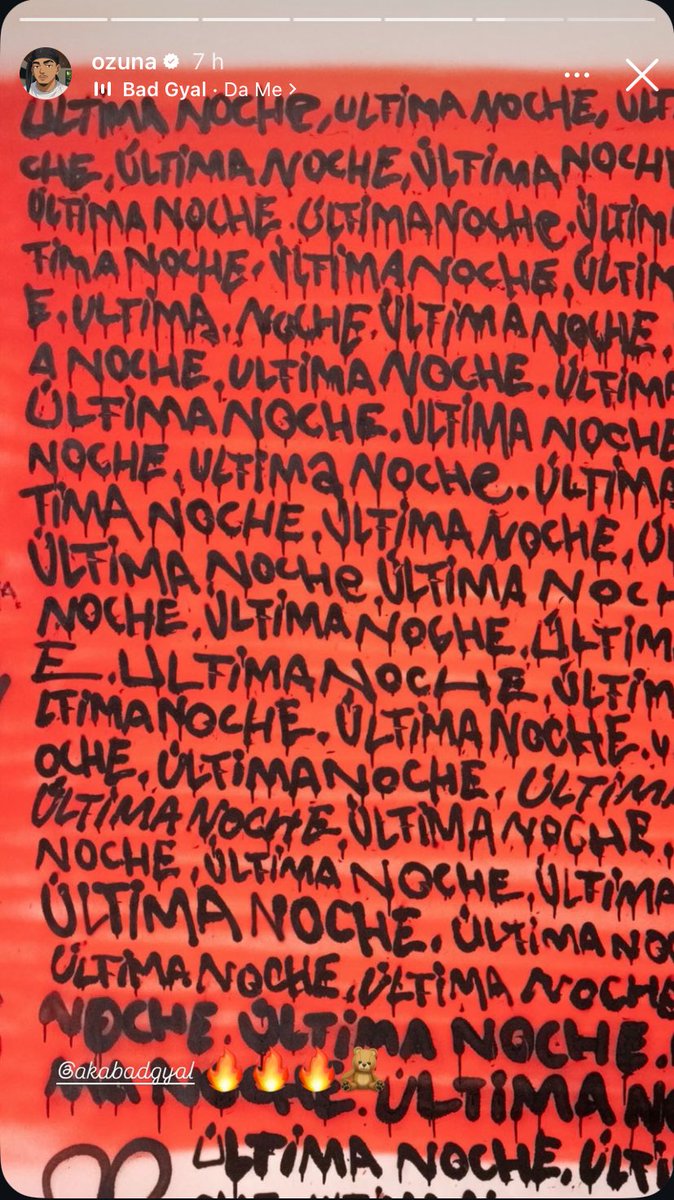 ozuna 7 h
Bad Gyal · Da Me >
ÚLTIMA NOCHe, ULTiMA NOCHE, ULT
CHE, ÚLTIMA NOCHE, ÚLTiMA NOCH
ÚLTIMA NOCHE. ÚLTIMA NOCHe, ÚLTiM
TiMA NOCHE, ÚLTIMA NOCHE, ÚLTiM
E. ULTiMA, NOCHE. ÚLTiMA NOCHE.
A NOCHE, ULTiMA NOCHE. ÚLTiMA
ÚLTIMA NOCHE. ÚLTIMA NOCHE
NOCHE, ULTIMa NOCHe. ÚLTIMA
TiMA NOCHE, ÚLTIMA NOCHE, ÚL
ÚLTiMA NOCHe, ÚLTIMA NOCH
NOCHE, ÚLTiMA NOCHE. ÚLTiM
E. ULTIMA NOCHE, ÚLTiM
LTiMA NOCHE. ÚLTIMA NOCHE. Ú
OCHE, ÚLTiMA NOCHE, ÚLTiMA
ÚLTIMA NOCHE, ÚLTIMA NOCHE,
NOCHE, ÚLTiMA NOCHE, ÚLTiMA
ÚLTIMA NOCHE. ÚLTiMA NOC
ÚLTiMA NOCHE, ÚLTiMA NOCHE
NOCHE. ÚLTiMA NOCHE.
@akabadgyal 🔥🔥🔥🧸
MA NOCHE. ULTIMA NO
ÚLTIMA NOCHE. ÚLTi